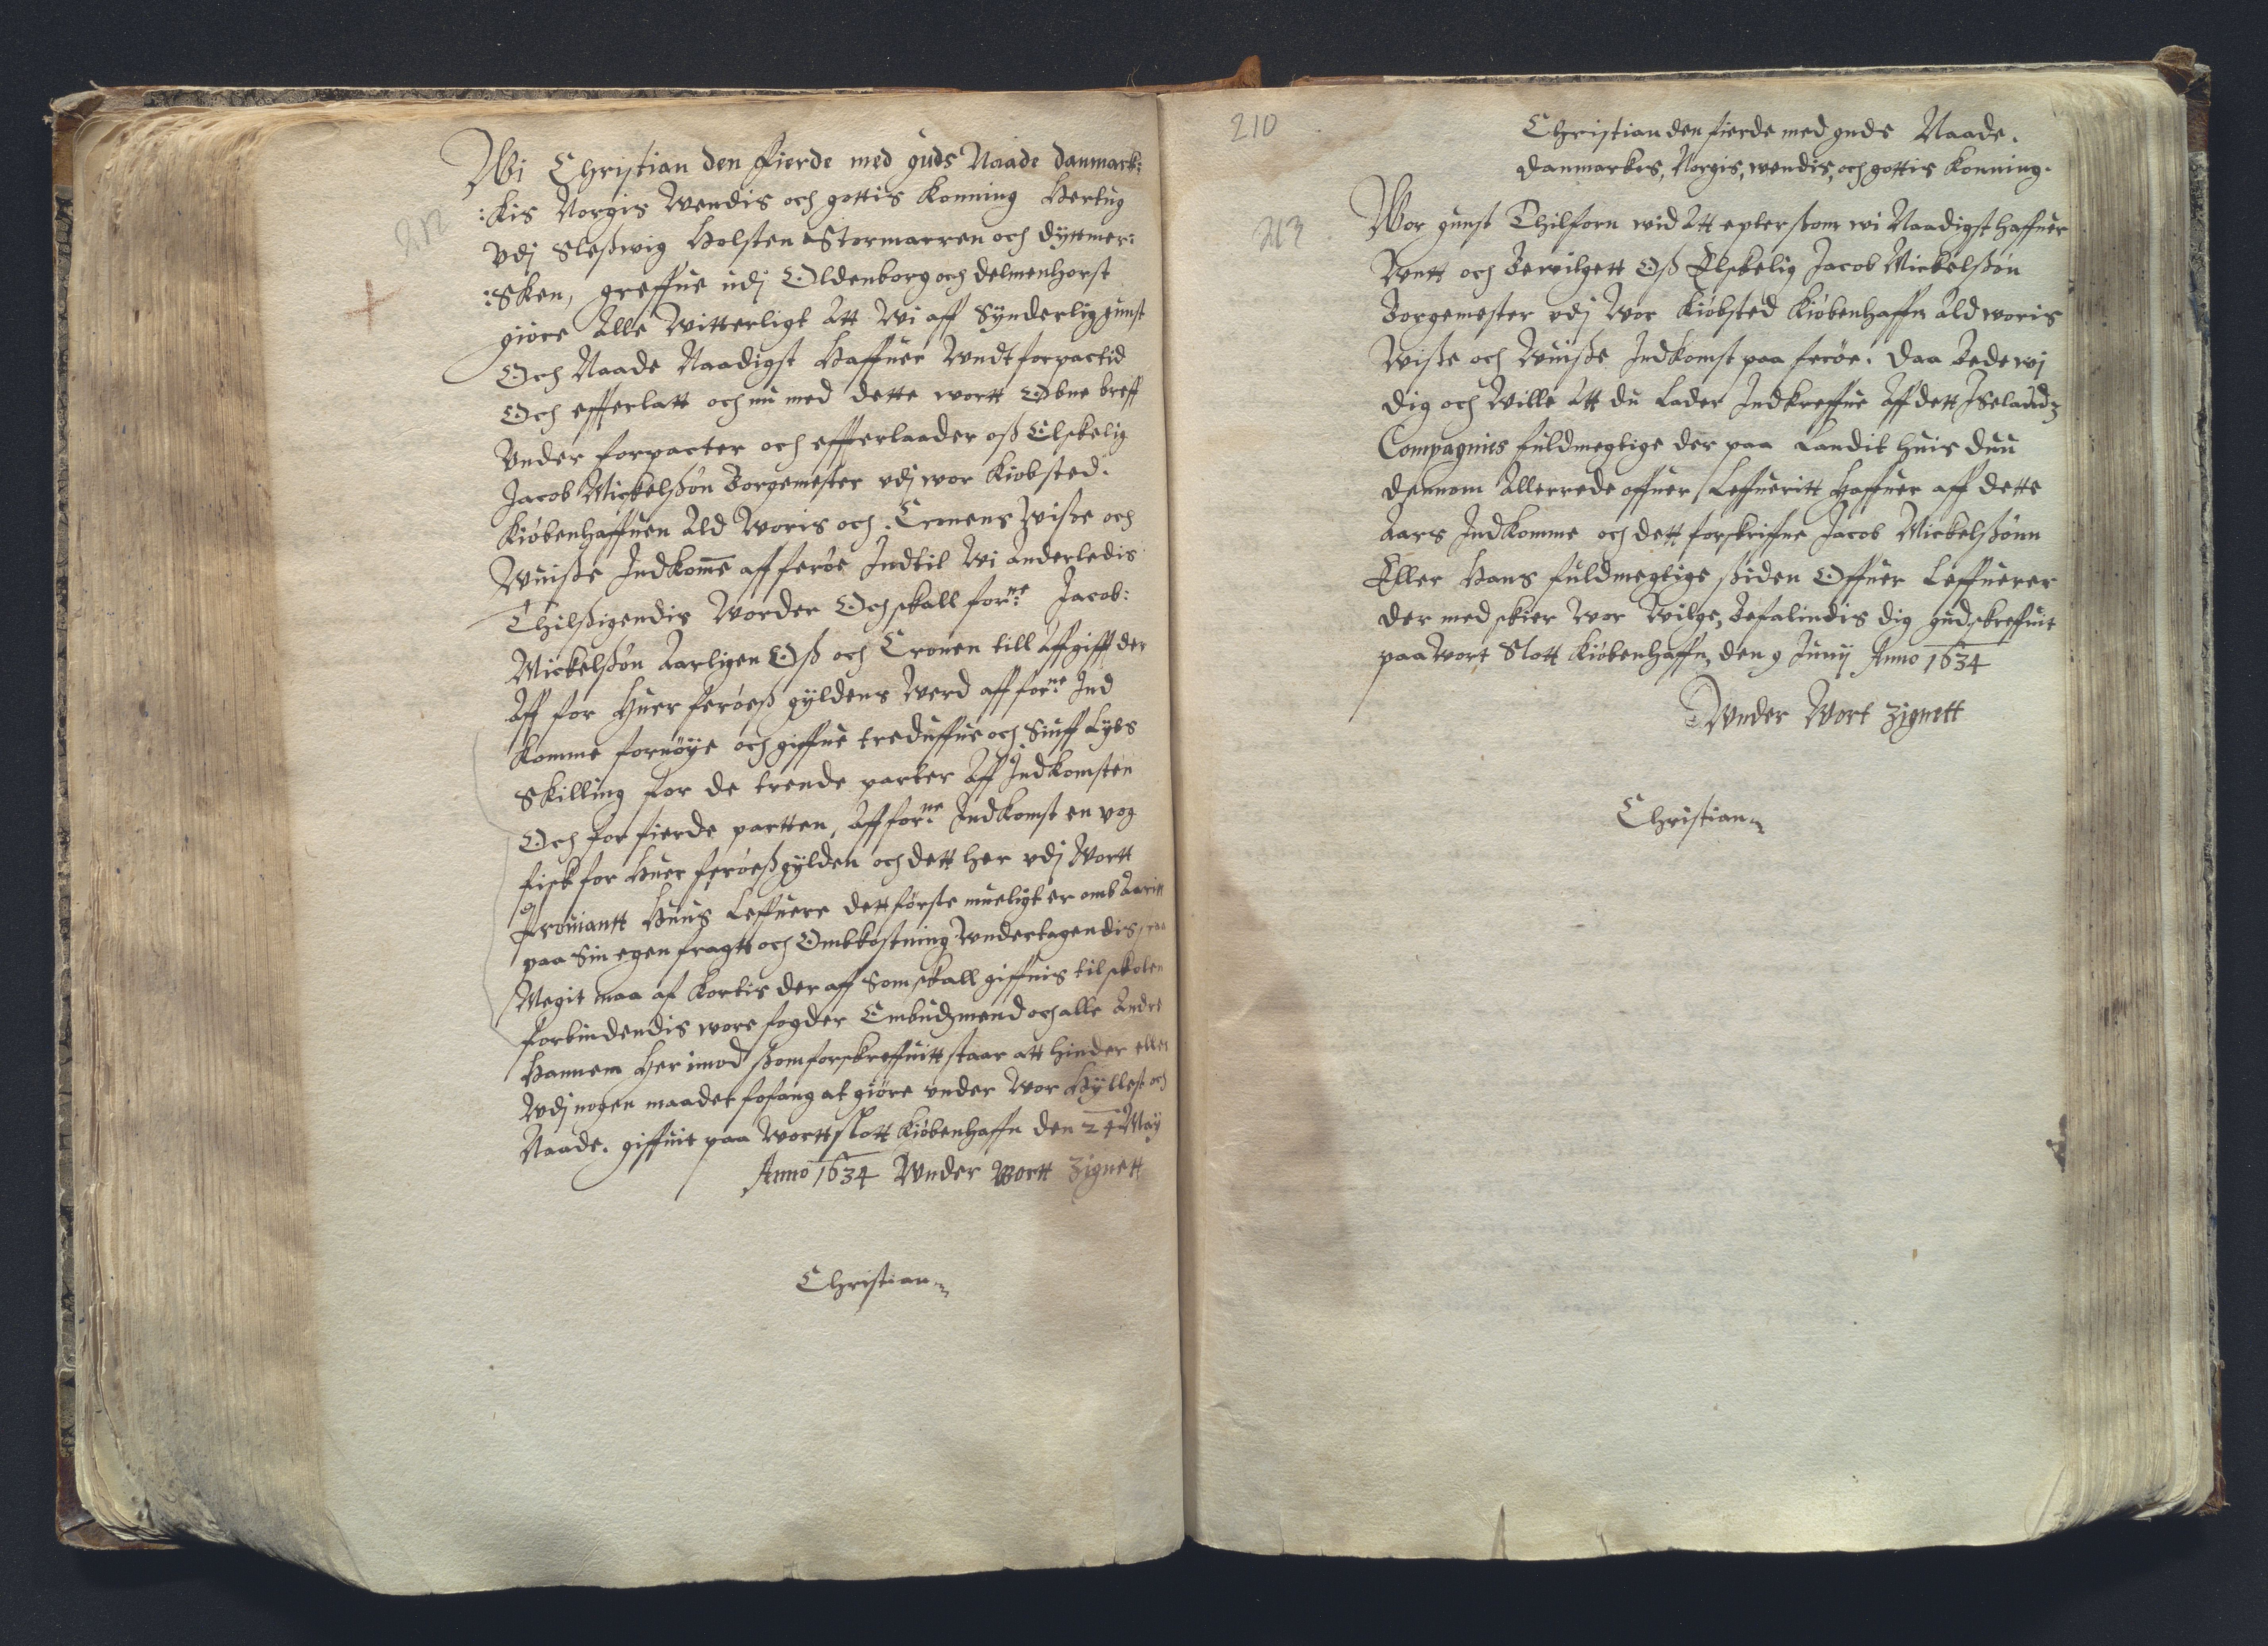 212
Wi Christian den Fierde med guds Naade danmarck:
:kis Norgis Wendis och gottis Konning Hertug
Vdj Sleßwig Holsten Stormarren och dyttmer:
:Sken, greffue udj Oldenborg och delmenhorst
giøre Alle Witterligt Att Wi aff Synderlig gunst
Och Naade Naadigst Haffuer Undt forpactid
Och effterlatt och nu med dette wortt Obne breff
Under forpacter och effterlaader oß Elskelig
Jacob Mickelßøn Borgemester vdj wor Kiøbsted.
Kiøbenhaffuen Ald Woris och Cronens Wisse och
Wuisße Indkome aff ferøe Indtil Wi anderledis
Thilßigendis Worder Och skall forne: Jacob:
Mickelßøn Aarligen Oß och Cronen till affgifft der
Aff for Huer ferøeß gyldens Werd aff forne: Ind
Komme fornøye och giffue treduffue och Siuff Lybs
Skilling for de trende parter Aff Indkomsten
Och for fierde partten, Aff forne: Indkomst en vog
fisk for Huer ferøeßgylden och dett her vdj Wortt
Prouiantt Huus Leffuere dett første mueligt er omb Aaritt
paa Sin egen fragtt och Ombkostning Undertagendis
Megit maa af kortis der aff Som skall giffuis til skolen
forbindendis wore fogder Embudzmend och alle Andre
Hannem Her imod ßom forskreffuitt staar att hinder eller
Udj nogen maader fofang at giøre vnder Wor Hyllest och
Naade. giffuit paa Wortt slott Kiøbenhaffn den 24 May
Anno 1634 Under Wortt Zignett
Christian
210
213
Christian den fierde med guds Naade.
Danmarkes, Norgis, wendis, och gottis Konning.
Wor gunst Thilforn wid Att epter ßom wi Naadigst haffuer
Untt och Bewilgett Oß Elskelig Jacob Mickelßøn
Borgemester vdj Wor Kiøbsted Kiøbenhaffn Ald woris
Wiße och Wuisße Indkomst paa ferøe. Daa Bede wj
dig och Wille Att du Lader Indkreffue Aff dett Iselandz
Compagnies fuldmegtige der paa Landit huis duu
dennom Allerrede offuer Leffueritt Haffuer aff dette
Aars Indkomme och dett forskriffne Jacob Mickelßønn
Eller Hans fuldmegtige ßiden Offuer Leffuerer
der med skier Wor Wilge, Befalindis dig gud skreffuit
paa Wort Slott Kiøbenhaffn den 9 Junij Anno 1634
Under Wort Zignett
Christian